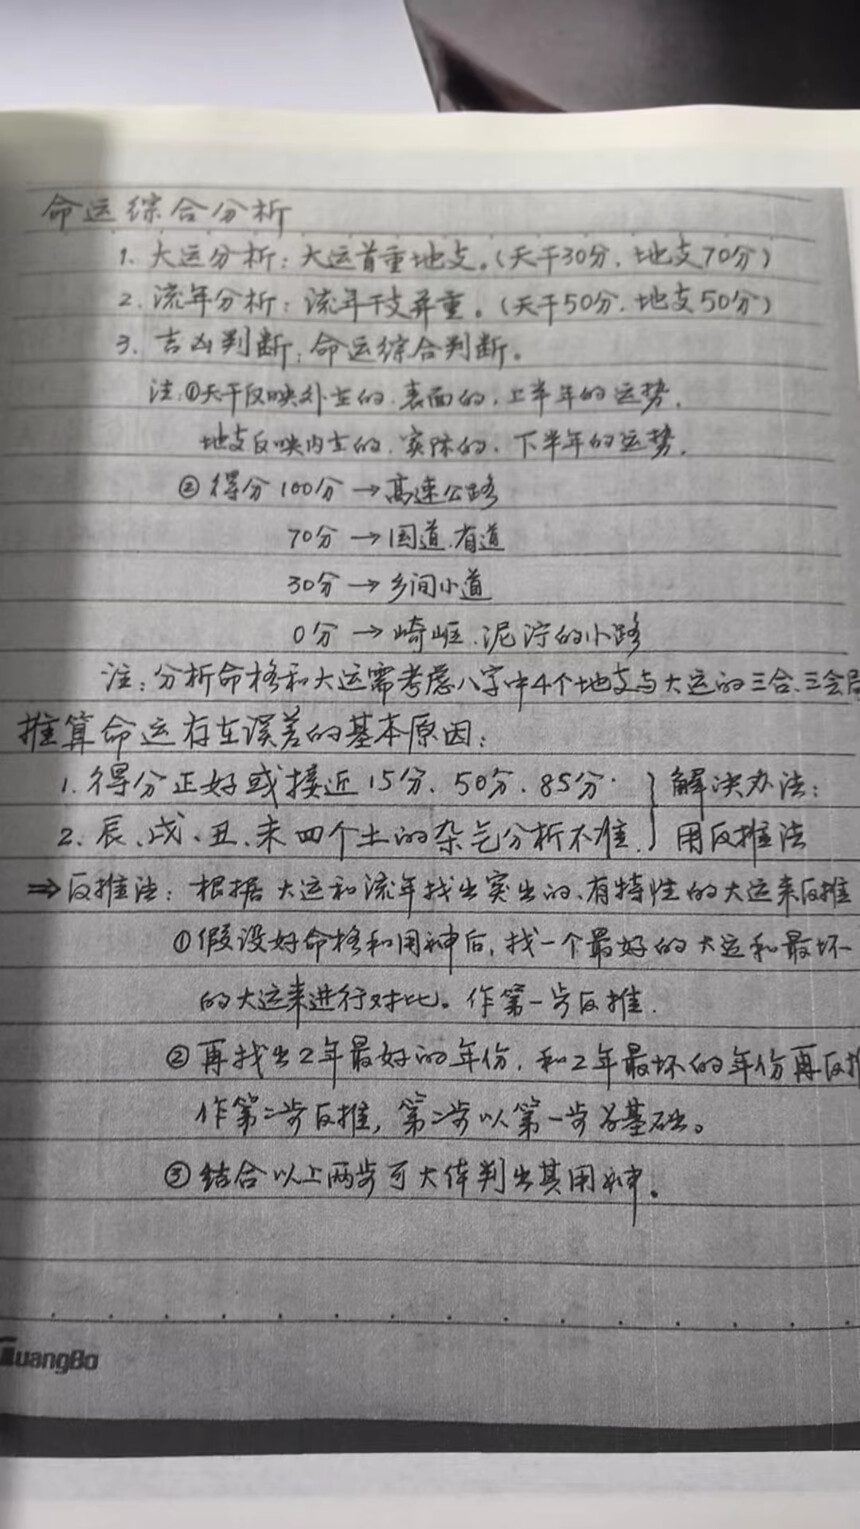 命运综合分析
1. 大运分析：大运首重地支。(天干30分．地支70分)
2. 流年分析：流年干支并重。(天干50分．地支50分)
3. 吉凶判断：命运综合判断。
注：①天干反映外在的．表面的．上半年的运势．
地支反映内在的．实际的．下半年的运势．
②得分100分→高速公路
70分→国道．省道
30分→乡间小道
0分→崎岖．泥泞的小路
注：分析命格和大运需考虑八字中4个地支与大运的三合、三会局
推算命运存在误差的基本原因：
1. 得分正好或接近15分、50分、85分． } 解决办法：
2. 辰、戌、丑、未四个土的杂气分析不准．} 用反推法
⇒反推法：根据大运和流年找出突出的、有特性的大运来反推
①假设好命格和用神后，找一个最好的大运和最坏
的大运来进行对比。作第一步反推．
②再找出2年最好的年份，和2年最坏的年份再反推
作第二步反推，第二步以第一步为基础。
③结合以上两步可大体判出其用神。
GuangBo